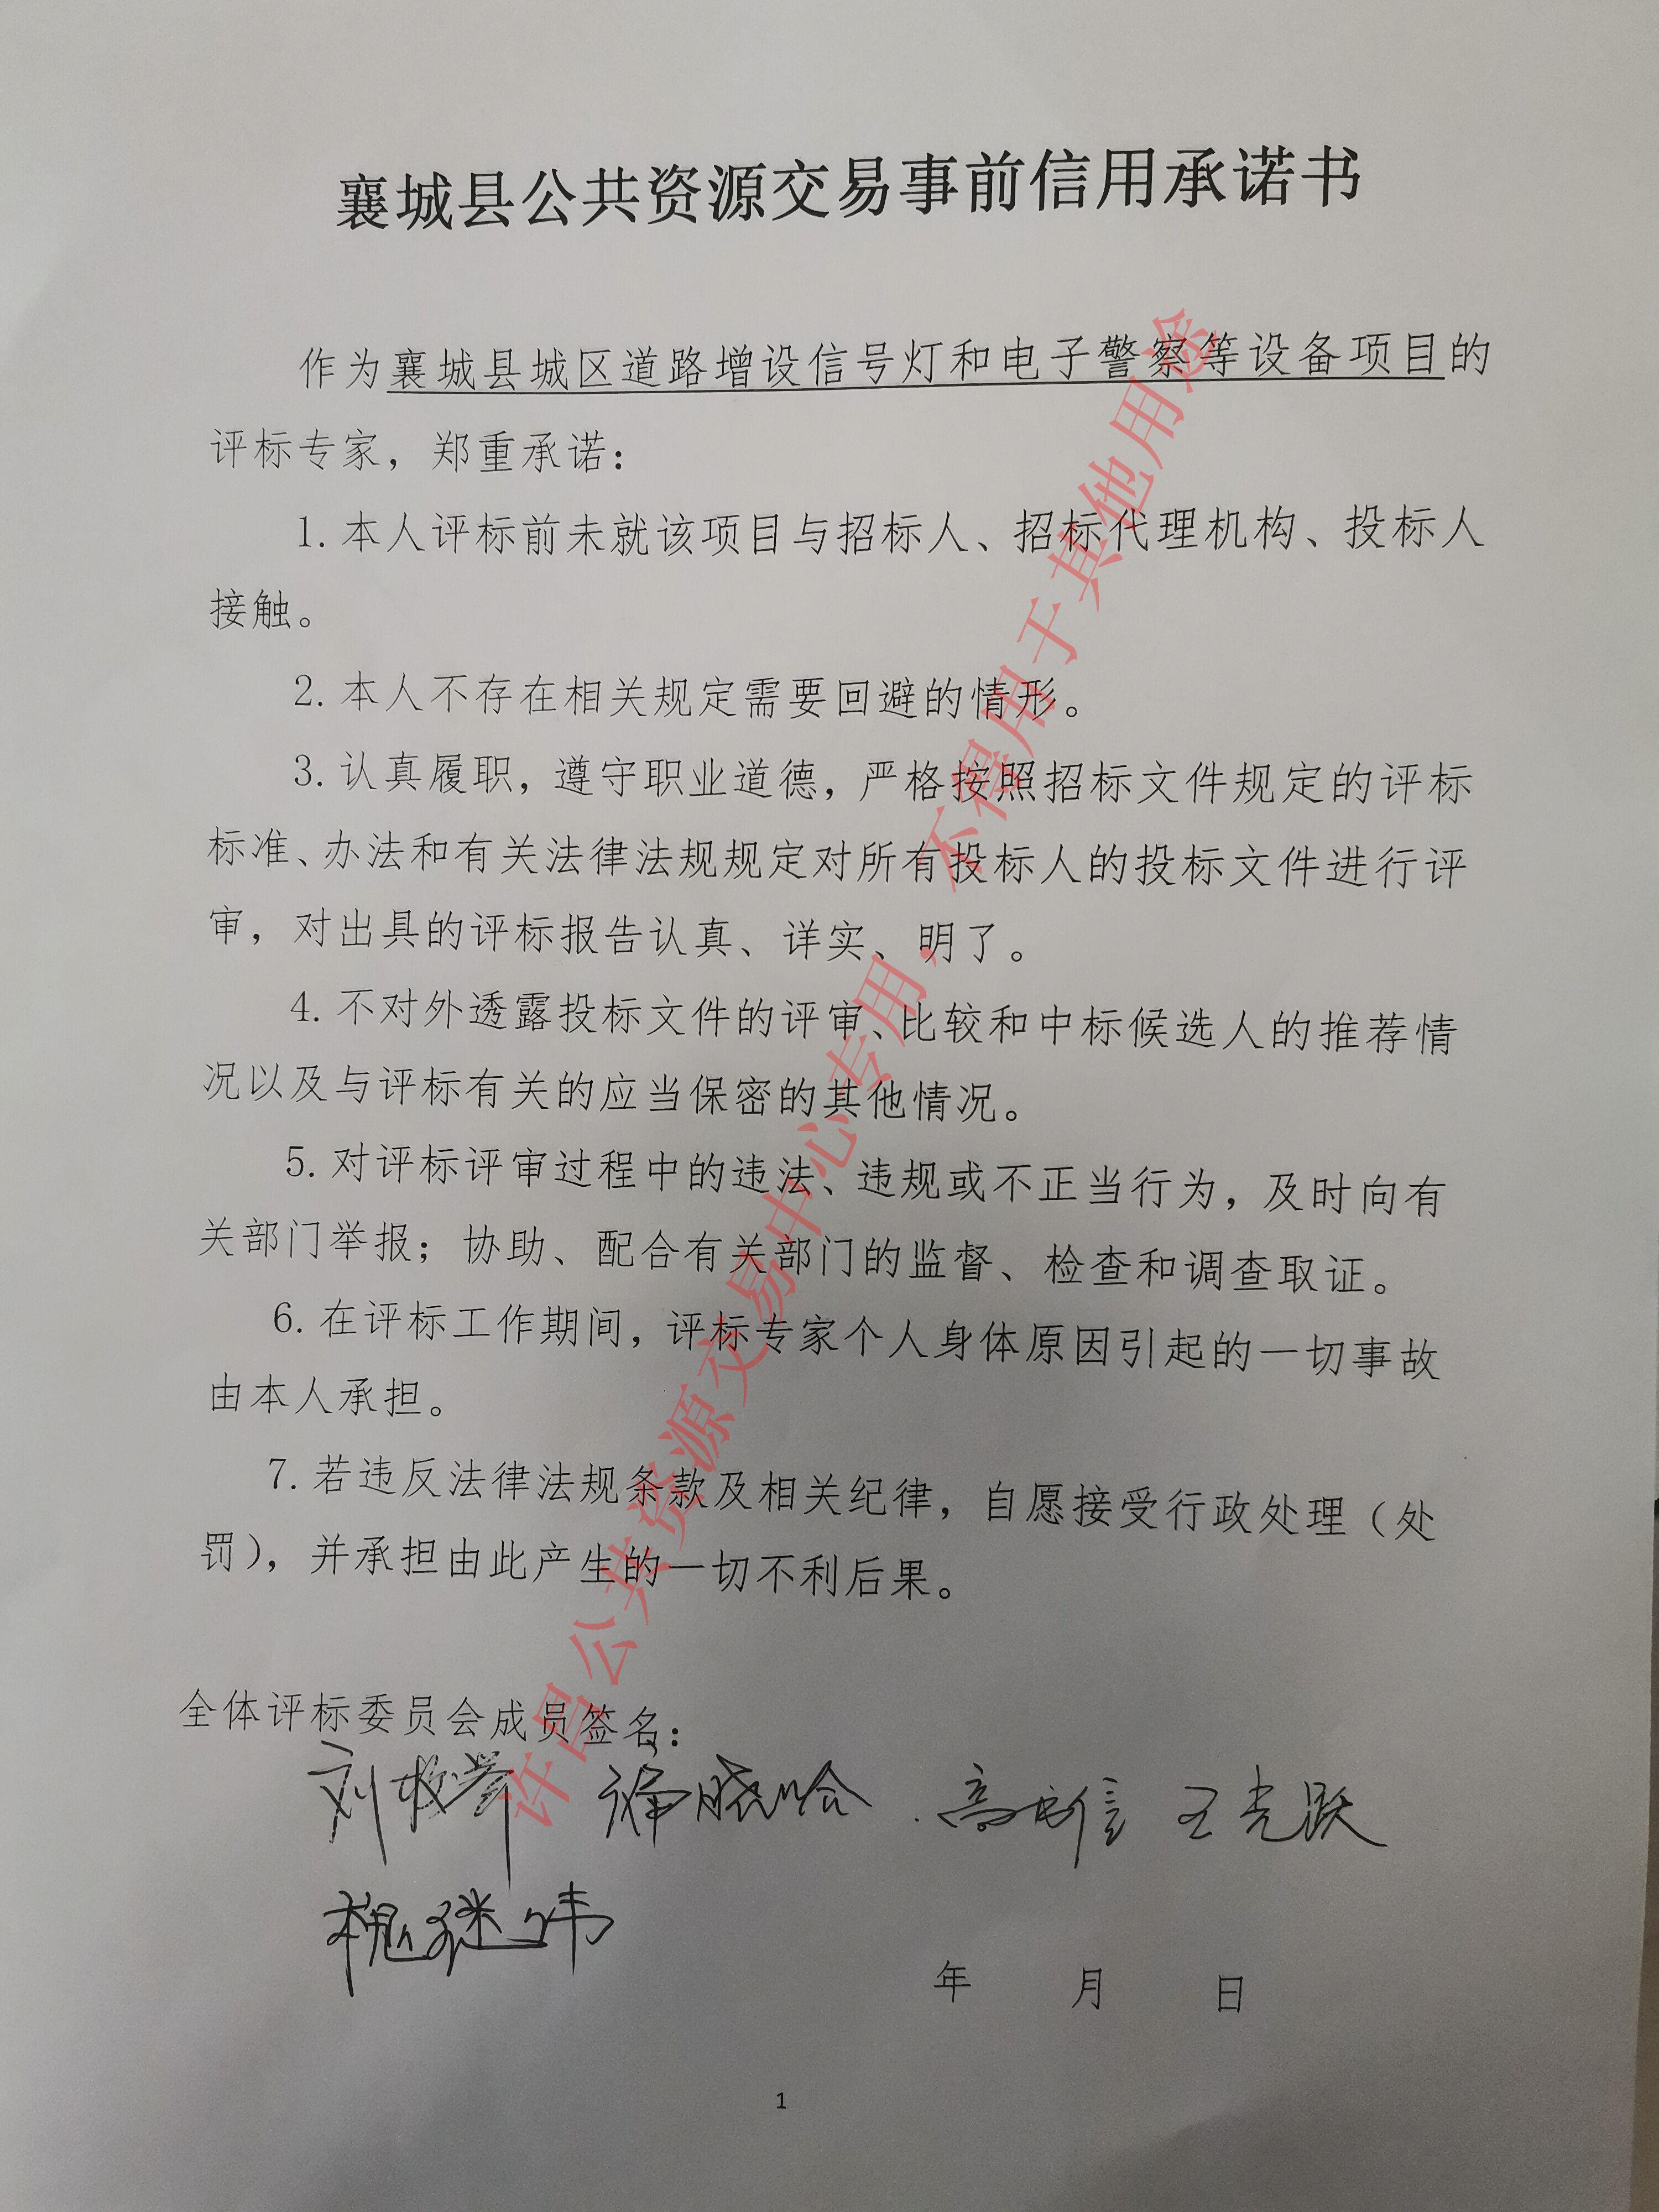 襄城县公共资源交易事前信用承诺书
作为襄城县城区道路增设信号灯和电子警察等设备项目的
评标专家，郑重承诺：
1.本人评标前未就该项目与招标人、招标代理机构、投标人
接触。
2.本人不存在相关规定需要回避的情形。
3.认真履职，遵守职业道德，严格按照招标文件规定的评标
标准、办法和有关法律法规规定对所有投标人的投标文件进行评
审，对出具的评标报告认真、详实、明了。
4.不对外透露投标文件的评审、比较和中标候选人的推荐情
况以及与评标有关的应当保密的其他情况。
5.对评标评审过程中的违法、违规或不正当行为，及时向有
关部门举报；协助、配合有关部门的监督、检查和调查取证。
6.在评标工作期间，评标专家个人身体原因引起的一切事故
由本人承担。
7.若违反法律法规条款及相关纪律，自愿接受行政处理（处
罚），并承担由此产生的一切不利后果。
全体评标委员会成员签名：
王光跃
年 月 日
1
许昌公共资源交易中心专用，不得用于其他用途